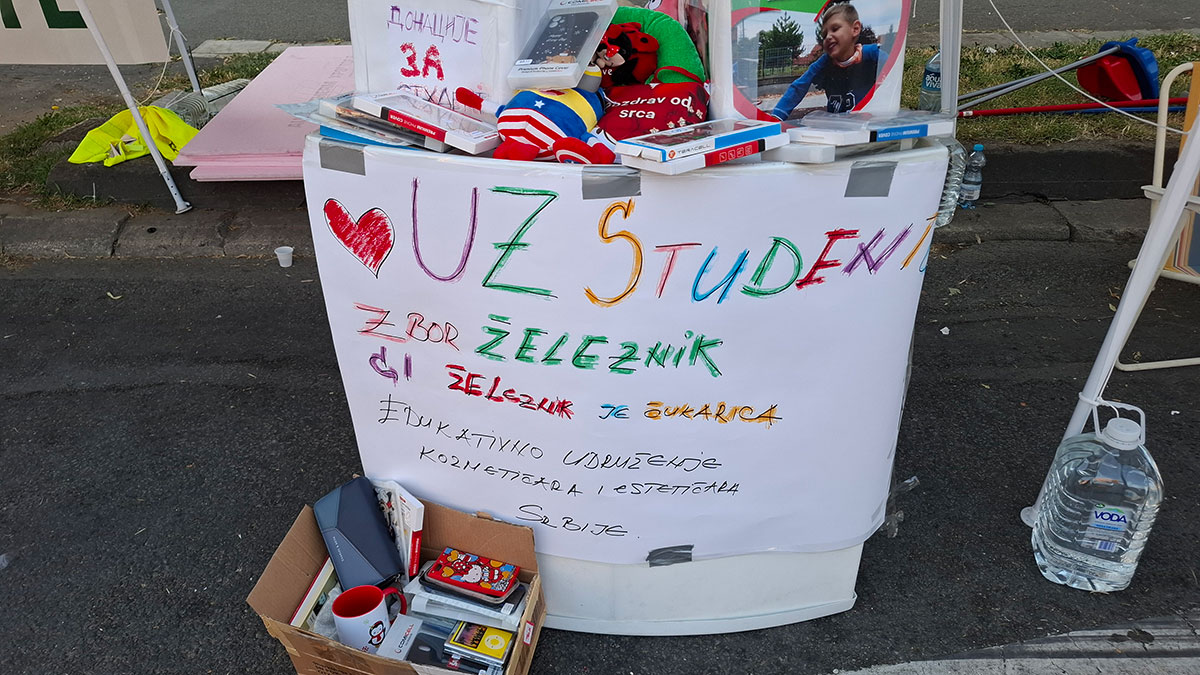 ДОНАЦИЈЕ
ЗА
Pozdrav od
srca
TERACELL
UZ STUDENT
ZBOR ŽELEZNIK
ŽELEZNIK JE ČUKARICA
EDUKATIVNO UDRUŽENJE
KOZMETIČARA I ESTETIČARA
SRBIJE.
VODA
COMICELL